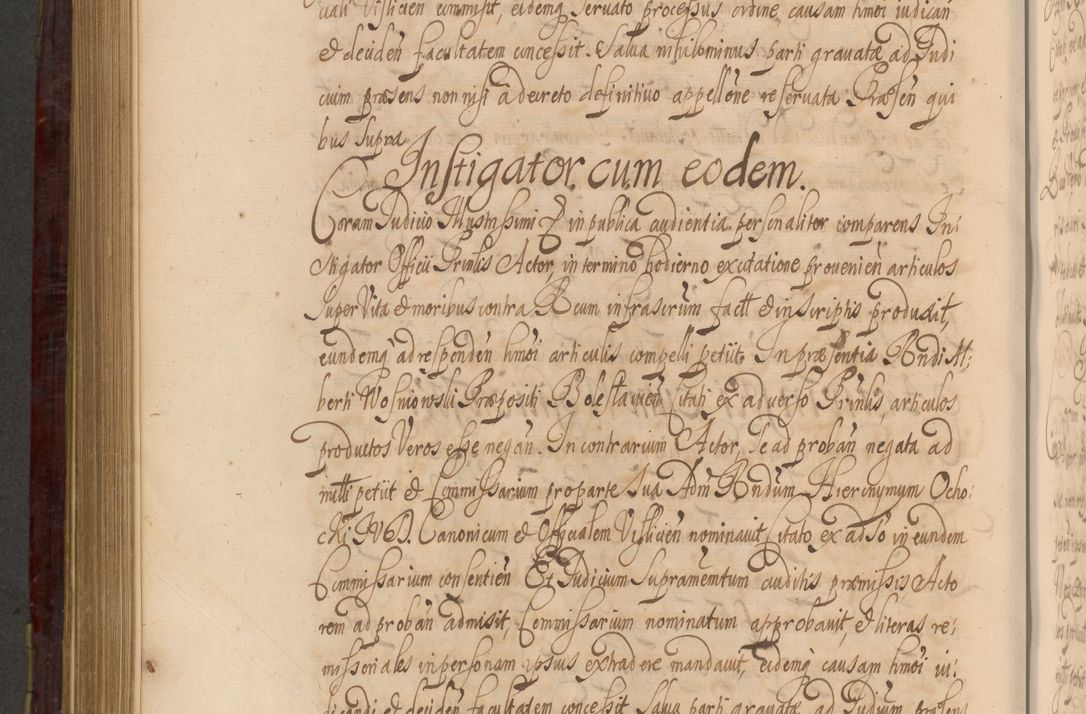 uali Visliciens commisit, eidemq servato processus ordine causam hmoi iudican
et deciden facultatem concessit. Salva nihilominus parti gravatæ ad Iudi
cium præsens non nisi à decreto definitivo appellõne reservata Præsen qui
bus supra
Instigator cum eodem.
Coram Iudicio Illustrissimi & in publica audientia personaliter comparens In-
stigator Officii Prinlis Actor, in termino hodierno ex citatione provenien articulos
super Vita et moribus contra Reum infrascrum fact et in scriptis produxit,
eundemq ad responden hmoi articulis compelli petiit. In præsentia Rndi Al-
berti Wosniowski Præpositi Bolestavien citati ex adverso Prinlis, articulos
productos Veros esse negan. In contrarium Actor, se ad proban negata ad
mitti petiit et Commissarium pro parte sua Adm Rndum Hieronymum Ocho-
cki IVD. Canonicum et Officialem Vislicien nominavit, citato ex adso in eundem
Commissarium consentien Et Iudicium supramemtum auditis præmissis Acto
rem ad proban admisit, Commissarium nominatum approbavit, et literas re-
missoriales in personam ipsius extradere mandavit, eidemq causam hmoi iu-
dicandi et deciden facultatem concessit Salva parti gravatæ ad Iudium præsens